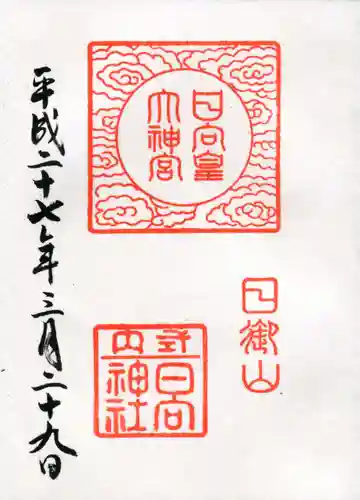 日向皇
大神宮
日御山
式内
日向
神社
平成二十七年三月二十九日